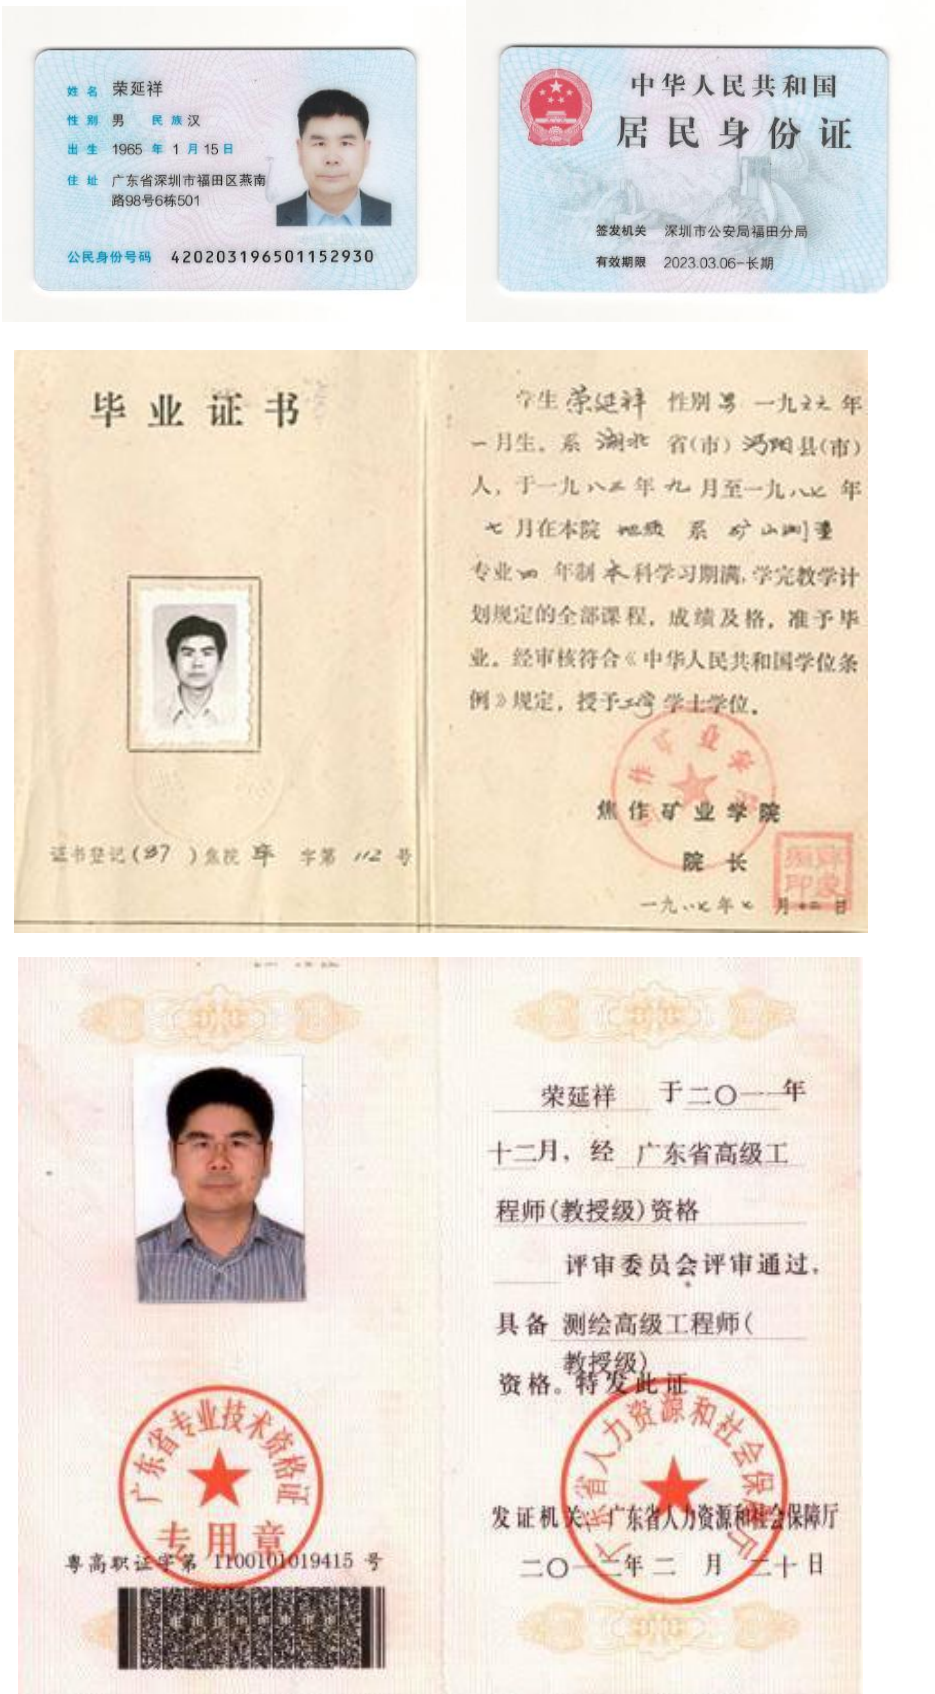 姓名 荣延祥
性别 男 民族 汉
出生 1965 年 1 月 15 日
住址 广东省深圳市福田区燕南
路98号6栋501
公民身份号码 420203196501152930
中华人民共和国
居民身份证
签发机关 深圳市公安局福田分局
有效期限 2023.03.06-长期
毕业证书
证书登记(87)焦院 毕 字第 112 号
学生 荣延祥 性别 男 一九六五 年
一月生。系 湖北 省(市) 沔阳 县(市)
人，于一九八三年 九 月至一九八七 年
七 月在本院 地质 系 矿山测量
专业 四 年制 本 科学习期满，学完教学计
划规定的全部课程，成绩及格，准予毕
业。经审核符合《中华人民共和国学位条
例》规定，授予 工学 学士学位。
焦作矿业学院
焦作矿业学院
院长
一九八七年七月十二日
广东省专业技术资格证
专用章
粤高职证字第 1100101019415 号
荣延祥 于二〇一一年
十二月，经 广东省高级工
程师(教授级)资格
评审委员会评审通过，
具备 测绘高级工程师(
教授级)
资格。特发此证
广东省人力资源和社会保障厅
发证机关：广东省人力资源和社会保障厅
二〇一二年二月二十日